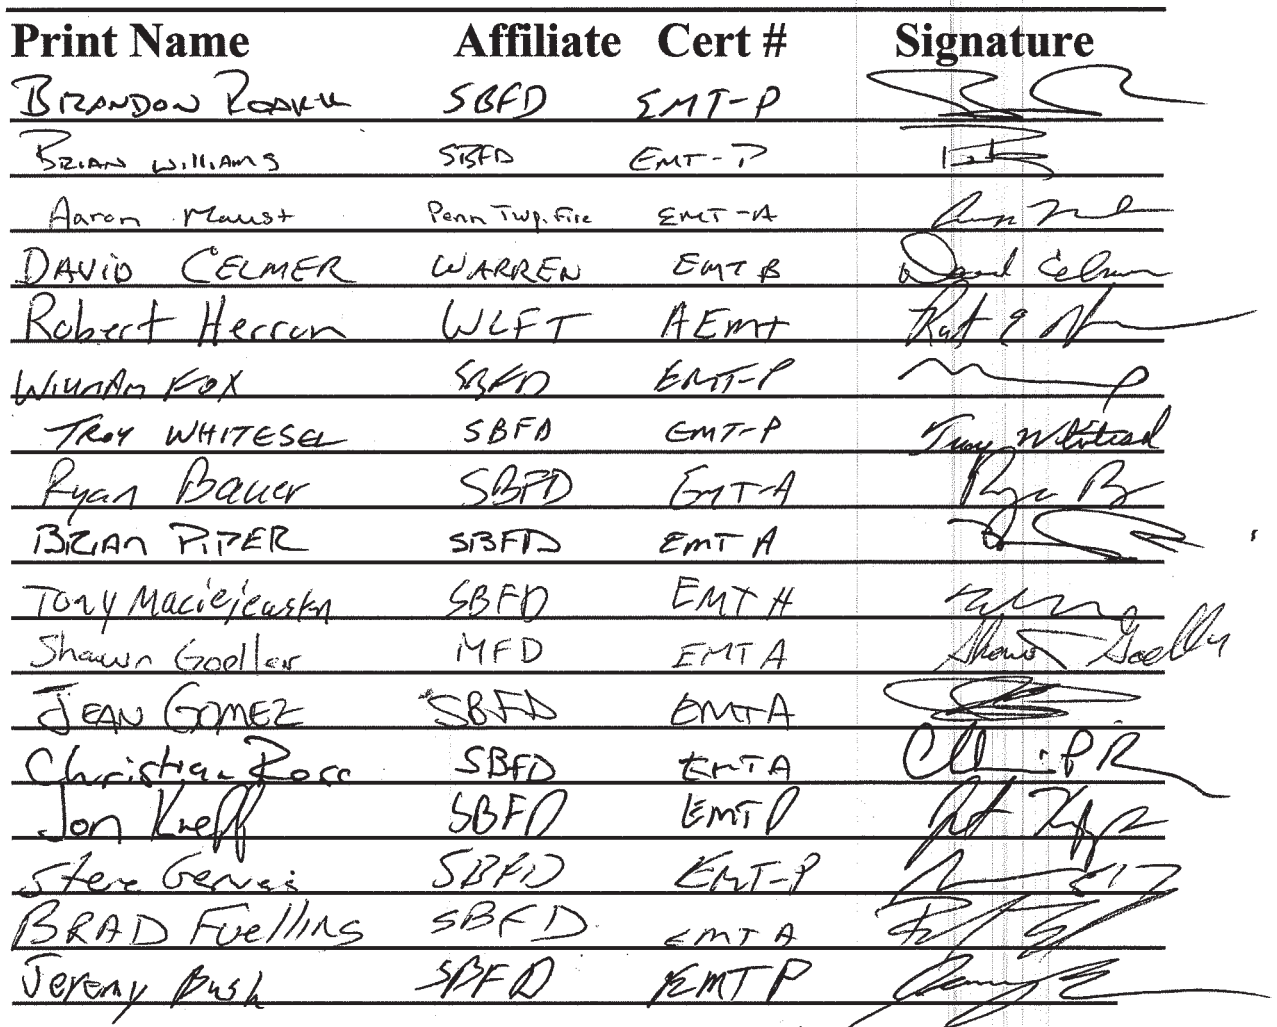 Print Name Affiliate Cert # Signature
BRANDON ROARK SBFD EMT-P
BRIAN WILLIAMS SBFD EMT-P
Aaron Maust Penn Twp. Fire EMT-A
DAVID CELMER WARREN EMT B David Celmer
Robert Herron WLFT AEMT
WILLIAM FOX SBFD EMT-P
TROY WHITESEL SBFD EMT-P Troy Whitesel
Ryan Bauer SBFD EMT-A
BRIAN PIPER SBFD EMT A
Tony Maciejewski SBFD EMT A
Shawn Goeller MFD EMT A Shawn
JEAN GOMEZ SBFD EMT A
Christian Ross SBFD EMT A
Jon SBFD EMT P
Steve Gervais SBFD EMT-P
BRAD Fuelling SBFD EMT A
Jeremy Bush SBFD EMT P